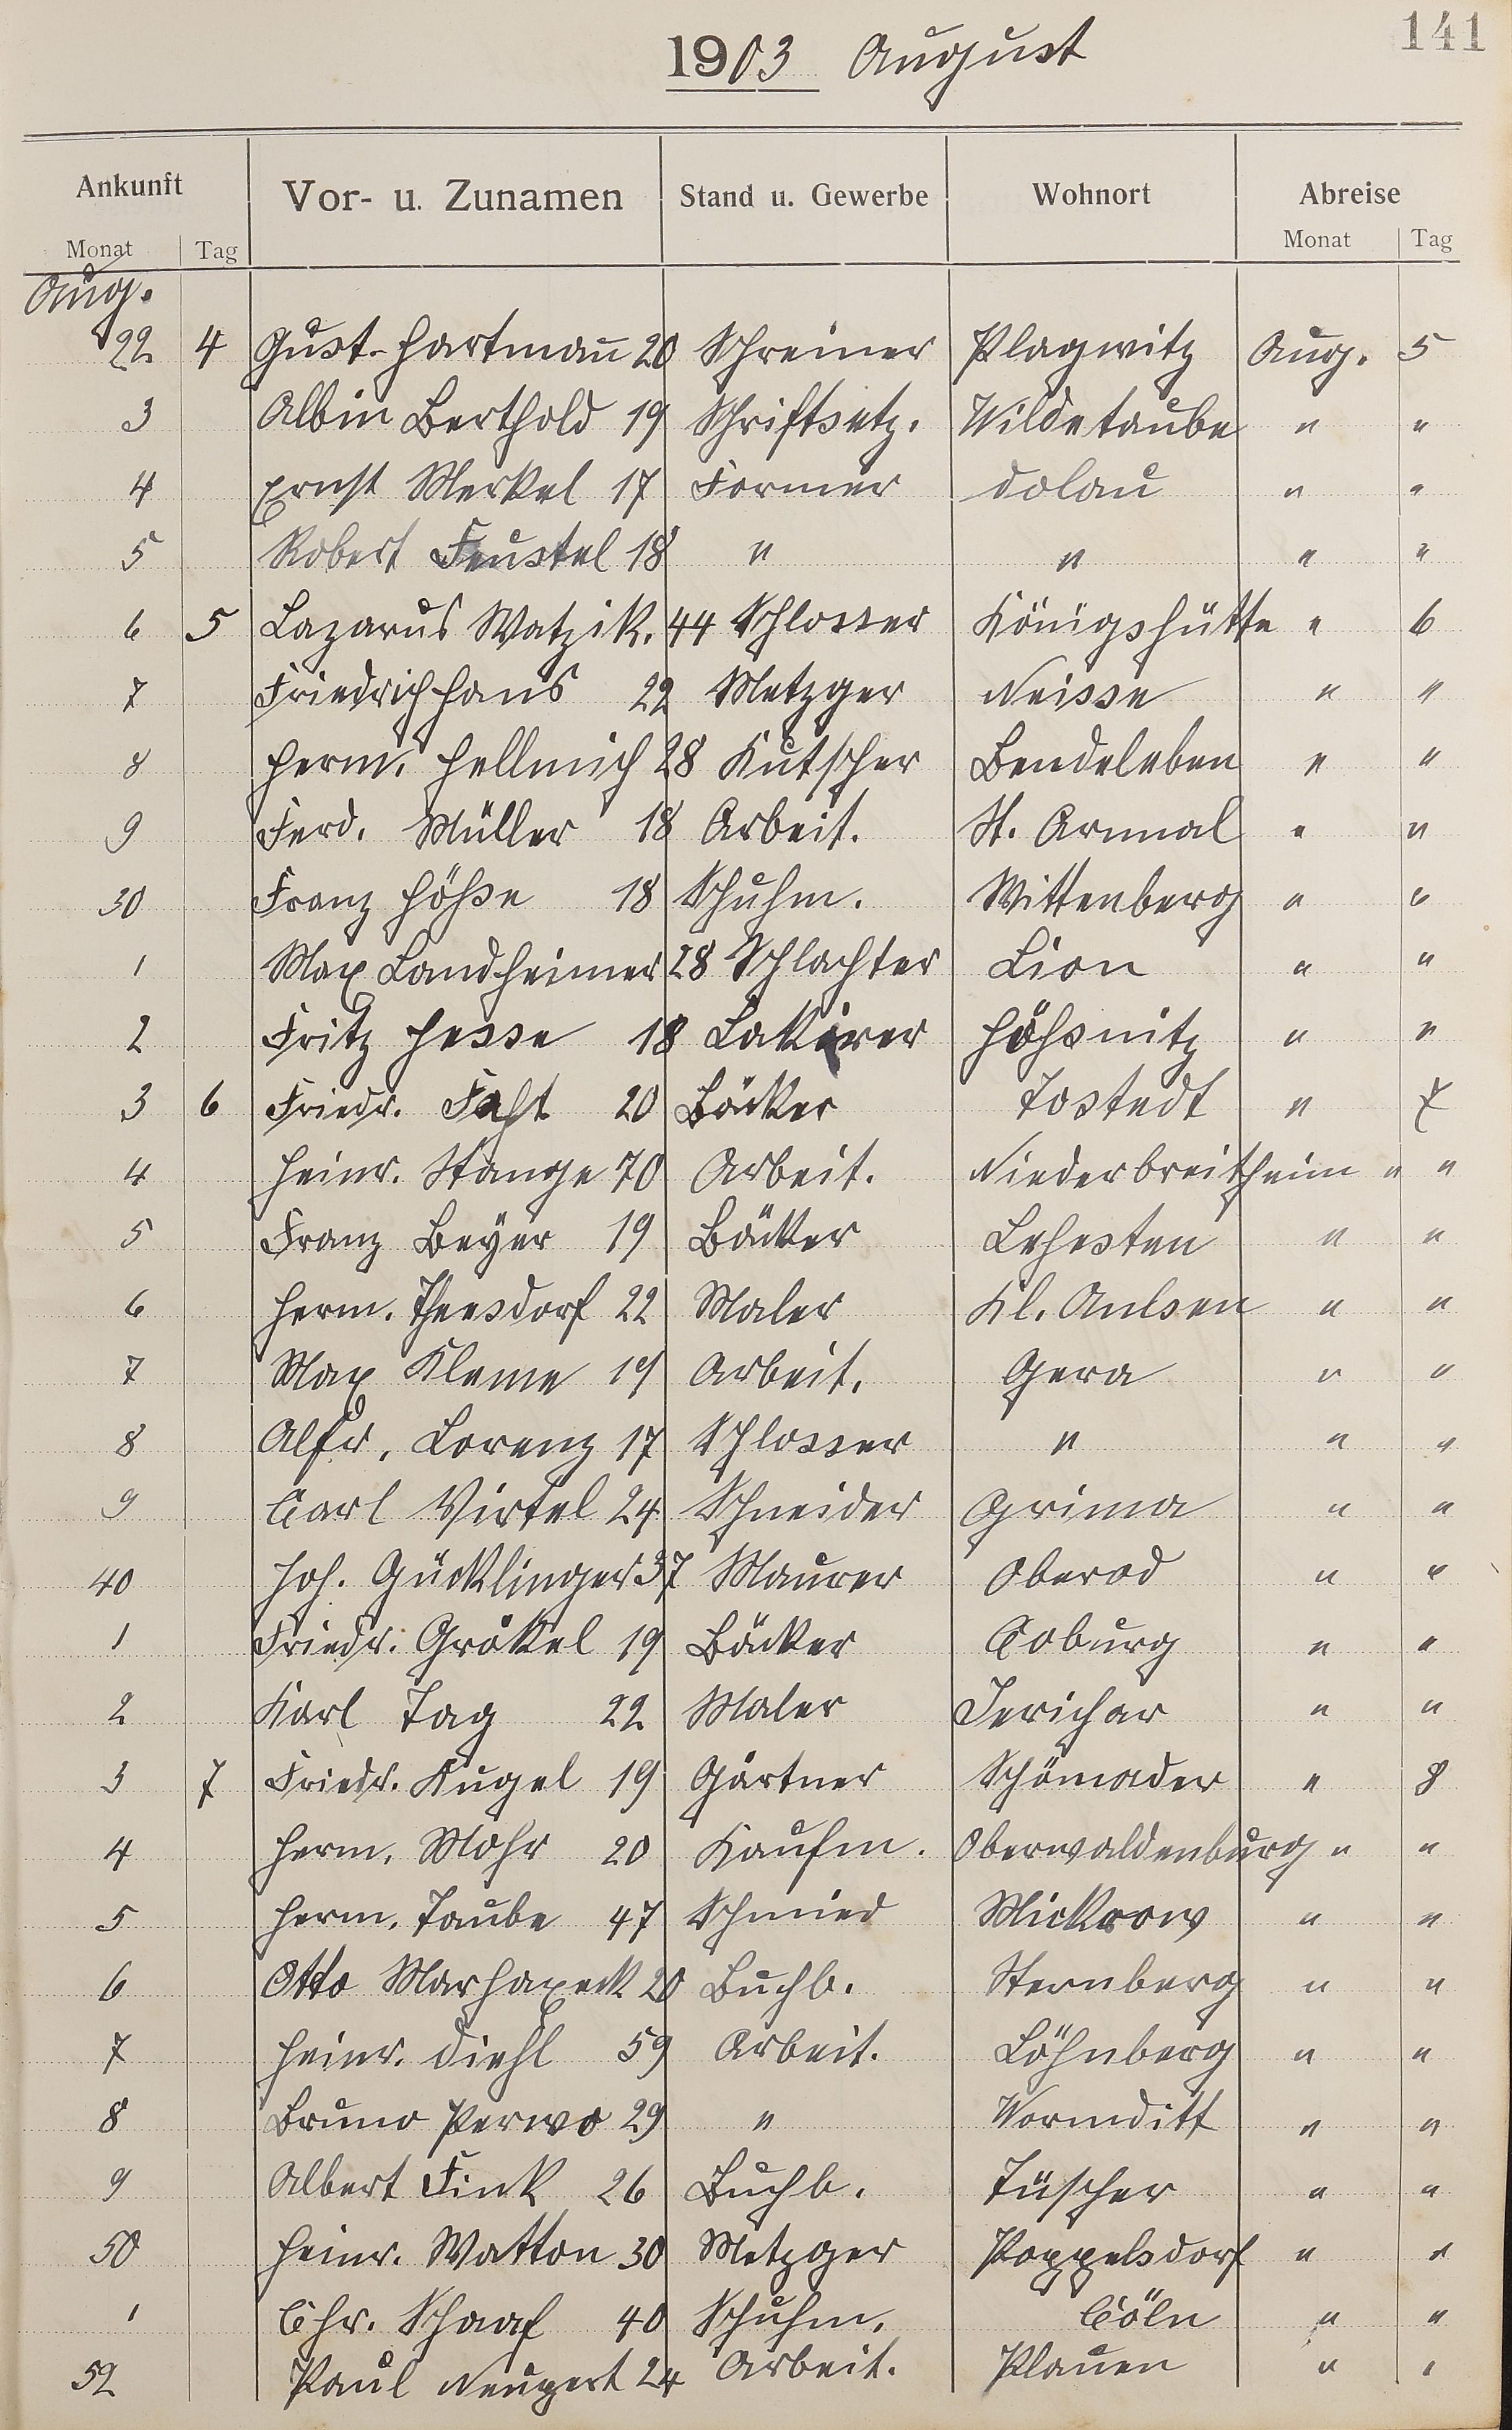 141
1903 August
Ankunft Vor- u. Zunamen Stand u. Gewerbe Wohnort Abreise
Monat Tag Monat Tag
Aug.
22 4 Gust. Hartmann 20 Schreiner Plagwitz Aug. 5
3 Albin Berthold 19 Schriftsetz. Wildetaube " "
4 Ernst Merkel 17 Former Dolau " "
5 Robert Feustel 18 " " " "
6 5 Lazarus Watzik. 44 Schlosser Königshütte " 6
7 Friedrich Hans 22 Metzger Neisse " "
8 Herm. Hellmich 28 Kutscher Bendeleben " "
9 Ferd. Müller 18 Arbeit. St. Arnual " "
30 Franz Höhse 18 Schuhm. Wittenberg " "
1 Max Landheimer 28 Schlachter Lion " "
2 Fritz Hesse 18 Lakirer Höhsnitz " "
3 6 Friedr. Faht 20 Bäcker Tostedt " 7
4 Heinr. Stange 70 Arbeit. Niederbreitheim " "
5 Franz Beyer 19 Bäcker Lehesten " "
6 Herm. Theesdorf 22 Maler Kl. Aulsen " "
7 Max Kleme 19 Arbeit. Gera " "
8 Alfr. Lorenz 17 Schlosser " " "
9 Carl Virtel 24 Schneider Grima " "
40 Joh. Gücklinger 37 Maurer Oberod " "
1 Friedr. Gräkel 19 Bäcker Coburg " "
2 Karl Tag 22 Maler Jerichar " "
3 7 Friedr. Kugel 19 Gärtner Schömader " 8
4 Herm. Mohr 20 Kaufm. Oberwaldenburg " "
5 Herm. Taube 47 Schmied Mickrow " "
6 Otto Marhaxeck 20 Buchb. Sternberg " "
7 Heinr. Diehl 59 Arbeit. Löhnberg " "
8 Bruno Perwo 29 " Wormditt " "
9 Albert Fink 26 Buchb. Tüscher " "
50 Heinr. Watton 30 Metzger Poppelsdorf " "
1 Chr. Schaaf 40 Schuhm. Cöln " "
52 Paul Neupert 24 Arbeit. Plauen " "